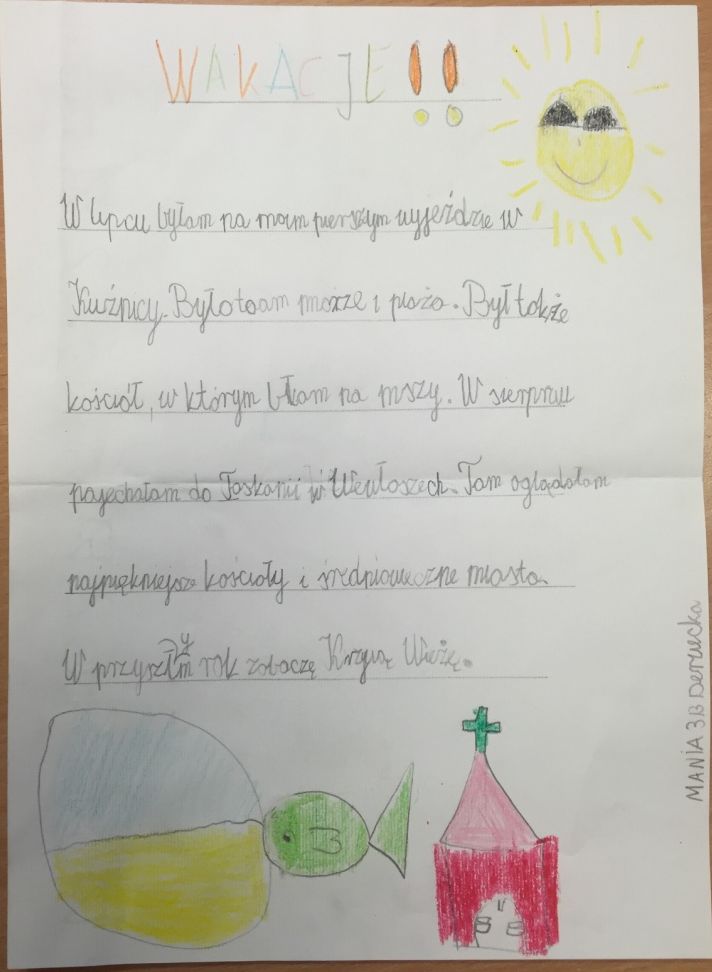 WAKACJE!!
W lipcu byłam na moim pierszym wyjeździe w
Kuźnicy. Było toam morze i plaża. Był także
kościół, w którym błam na mszy. W sierpniu
pojechałam do Toskanii w Wewłoszech. Tam oglądałam
najpiękniejsze kościoły i średniowieczne miasta.
W przyszły rok zobaczę Krzywą Wieżę.
MANIA 3B